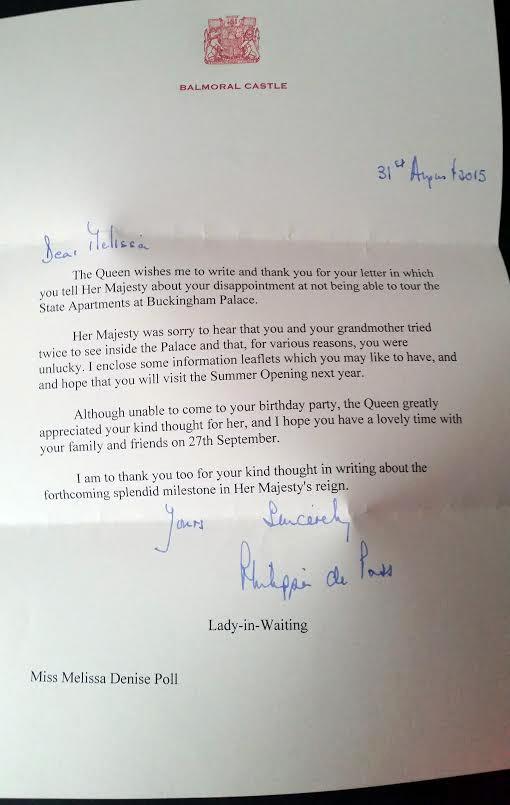 BALMORAL CASTLE
31st August 2015
Dear Melissa
The Queen wishes me to write and thank you for your letter in which
you tell Her Majesty about your disappointment at not being able to tour the
State Apartments at Buckingham Palace.
Her Majesty was sorry to hear that you and your grandmother tried
twice to see inside the Palace and that, for various reasons, you were
unlucky. I enclose some information leaflets which you may like to have, and
and hope that you will visit the Summer Opening next year.
Although unable to come to your birthday party, the Queen greatly
appreciated your kind thought for her, and I hope you have a lovely time with
your family and friends on 27th September.
I am to thank you too for your kind thought in writing about the
forthcoming splendid milestone in Her Majesty's reign.
Yours Sincerely
Philippa de Pass
Lady-in-Waiting
Miss Melissa Denise Poll